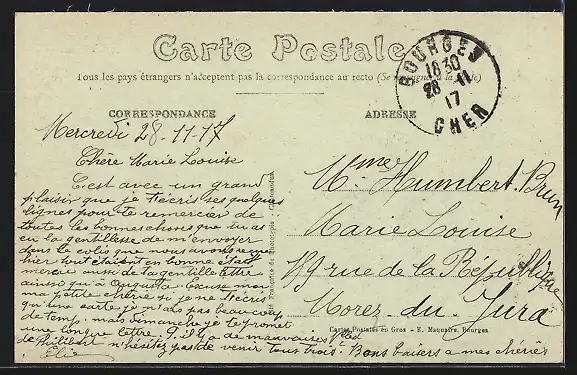 Carte Postale
Tous les pays étrangers n'acceptent pas la correspondance au recto (Se renseigner à la Poste)
CORRESPONDANCE
ADRESSE
BOURGES
18 30
28 11
17
CHER
Mercredi 28-11-17
Chère Marie Louise
C'est avec un grand
plaisir que je t'écris ses quelques
lignes pour te remercier de
toutes les bonnes choses que tu as
eu la gentillesse de m'envoyer
dans le colis que nous avons reçu
hier tout étaient en bonne état
merci aussi de la gentille lettre
ainsi qu'à Excuse moi
ma petite chérie si je ne t'écris
qu'une carte je n'ais pas beaucoup
de temp, mais dimanche je te promet
une longue lettre. S'il y a de mauvaires
de Philibert n'hésitez pas de venir tous trois. Bons baisers a mes chéries
Élie
Mme Humbert-Brun
Marie Louise
189 rue de la République
Morez-du-Jura
Cartes Postales en Gros - E. Maquaire, Bourges